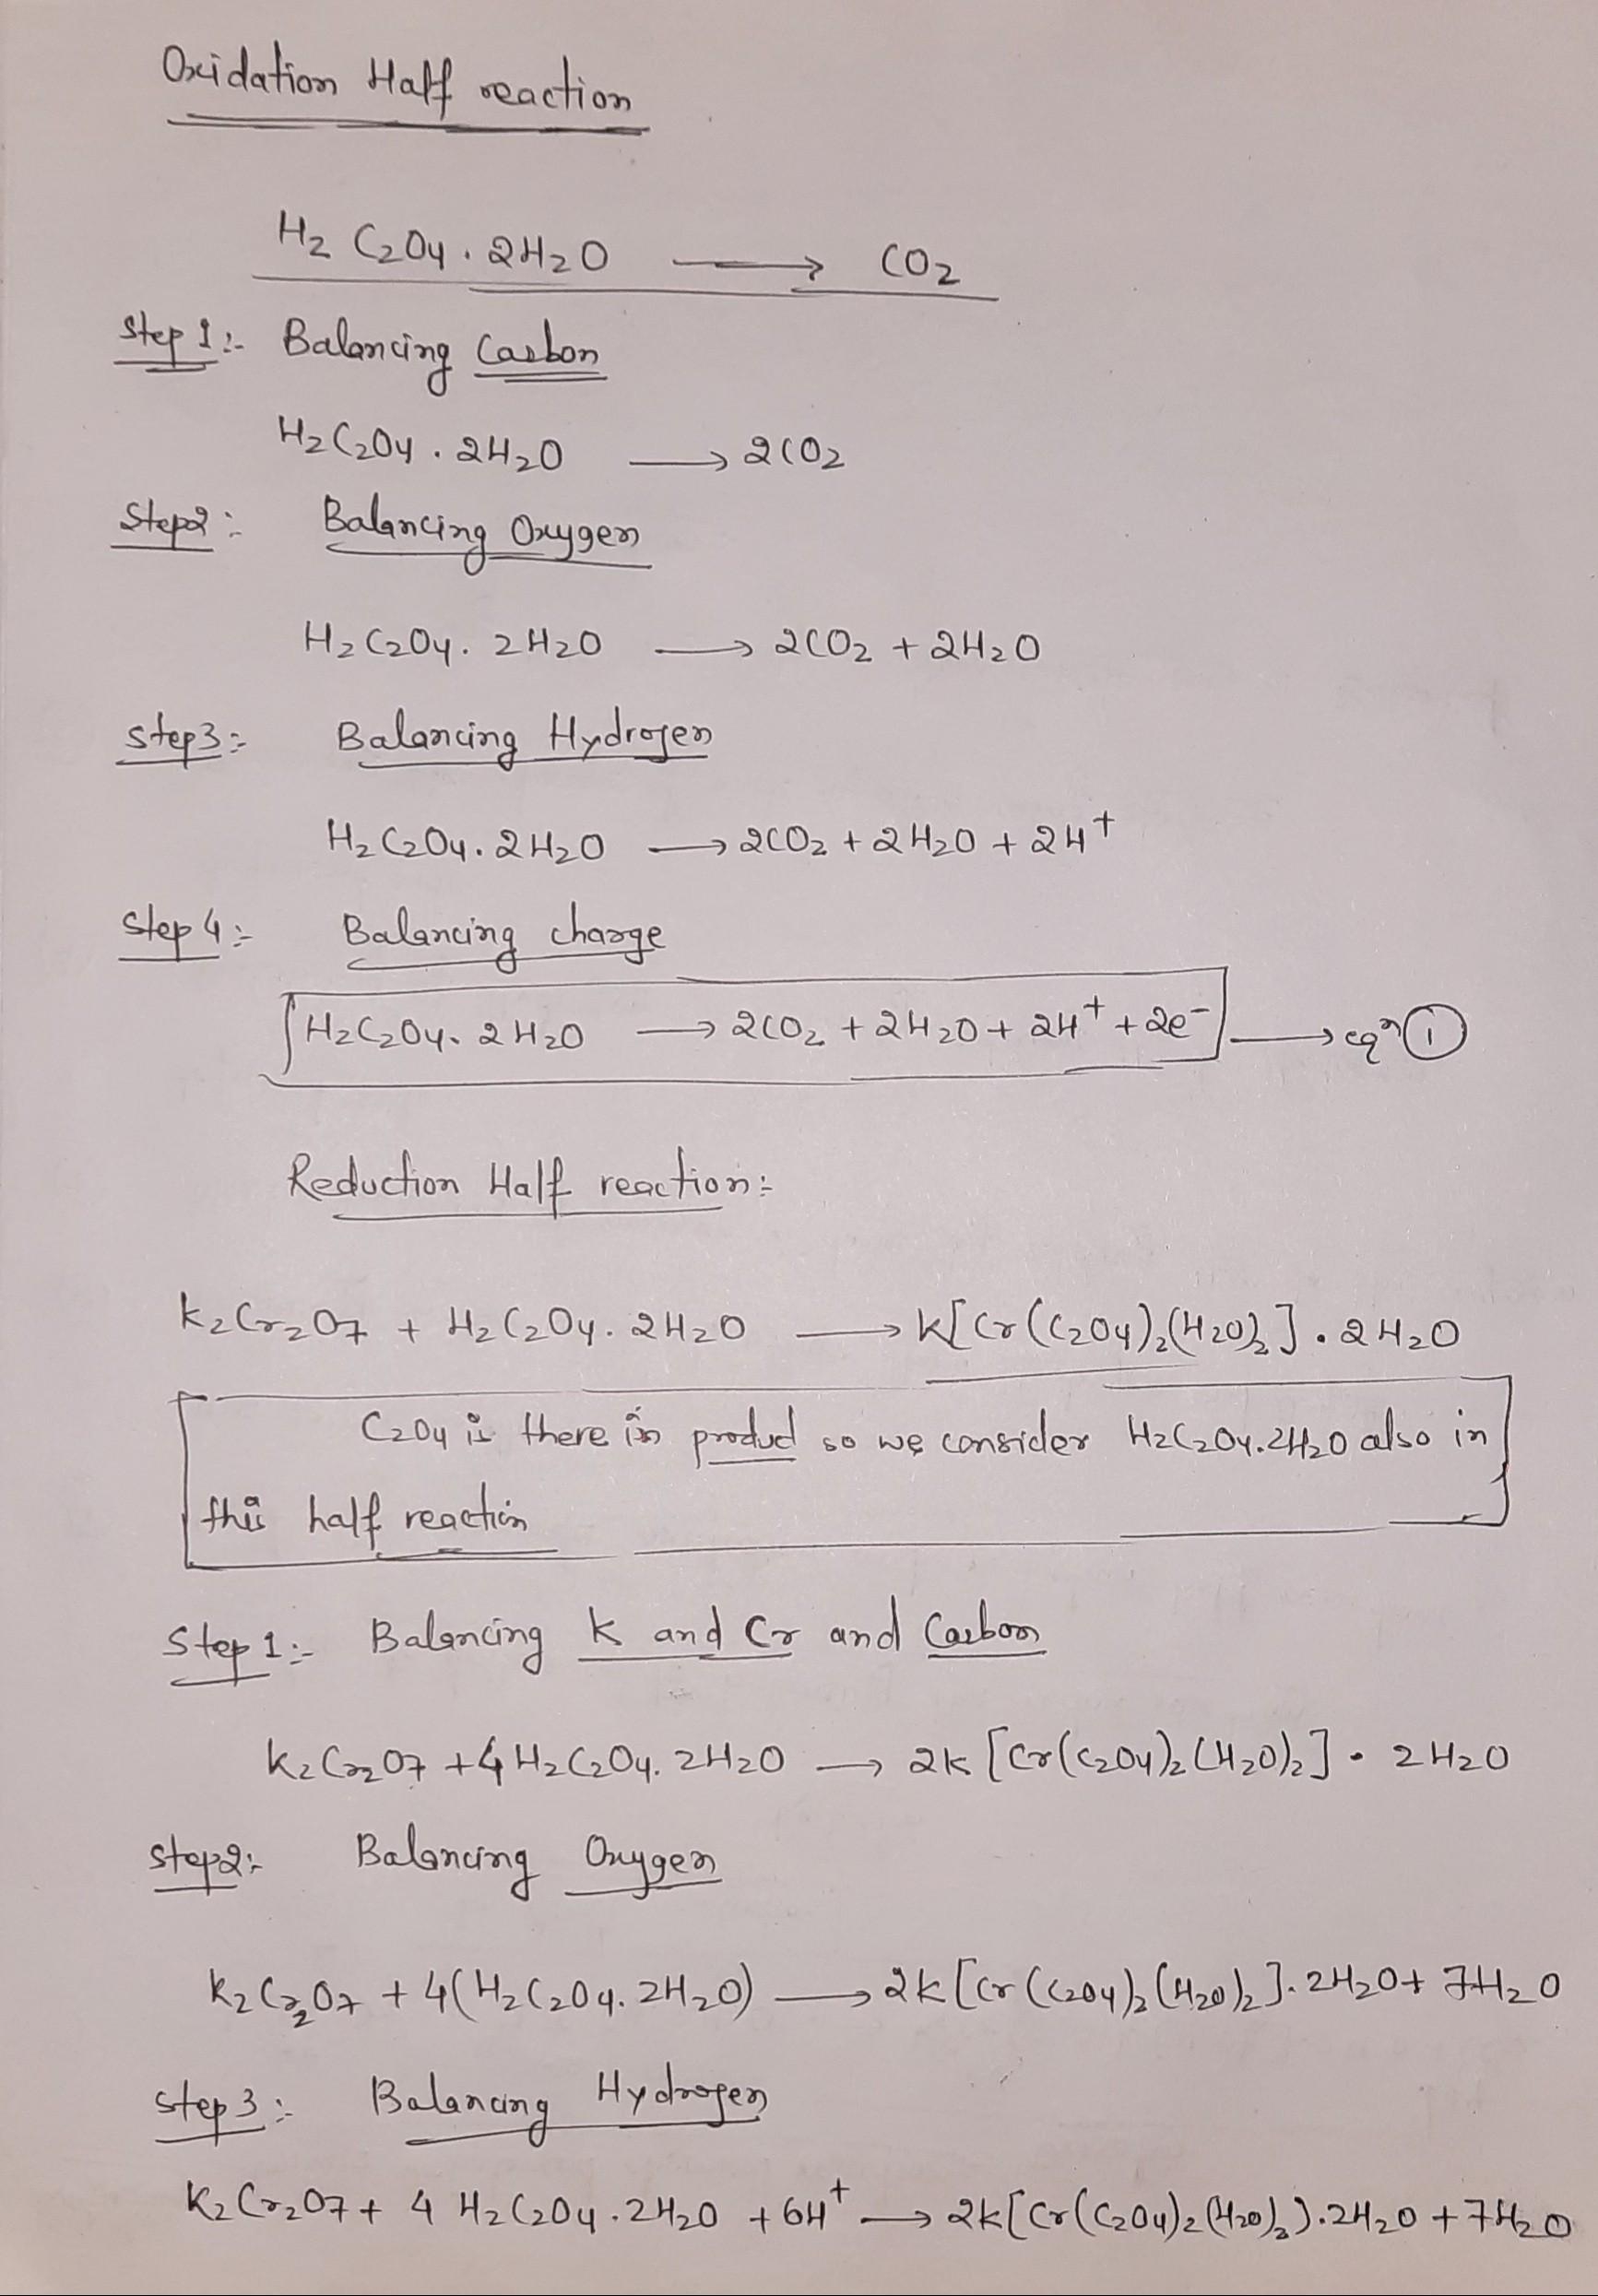 Oxidation Half reaction
H₂ C₂O₄ . 2H₂O ⟶ CO₂
Step 1:- Balancing Carbon
H₂C₂O₄ . 2H₂O ⟶ 2CO₂
Step2:- Balancing Oxygen
H₂C₂O₄. 2H₂O ⟶ 2CO₂ + 2H₂O
Step3:- Balancing Hydrogen
H₂C₂O₄. 2H₂O ⟶ 2CO₂ + 2H₂O + 2H⁺
Step 4:- Balancing charge
H₂C₂O₄. 2H₂O ⟶ 2CO₂ + 2H₂O + 2H⁺ + 2e⁻ ⟶ eqⁿ ①
Reduction Half reaction:-
K₂Cr₂O₇ + H₂C₂O₄. 2H₂O ⟶ K[Cr(C₂O₄)₂(H₂O)₂] . 2H₂O
C₂O₄ is there in product so we consider H₂C₂O₄.2H₂O also in
this half reaction
Step 1:- Balancing K and Cr and Carbon
K₂Cr₂O₇ + 4 H₂C₂O₄. 2H₂O ⟶ 2K [Cr(C₂O₄)₂ (H₂O)₂] . 2H₂O
Step2:- Balancing Oxygen
K₂Cr₂O₇ + 4(H₂C₂O₄. 2H₂O) ⟶ 2K [Cr (C₂O₄)₂ (H₂O)₂]. 2H₂O + 7H₂O
Step 3:- Balancing Hydrogen
K₂Cr₂O₇ + 4 H₂C₂O₄ . 2H₂O + 6H⁺ ⟶ 2K[Cr(C₂O₄)₂ (H₂O)₂).2H₂O + 7H₂O